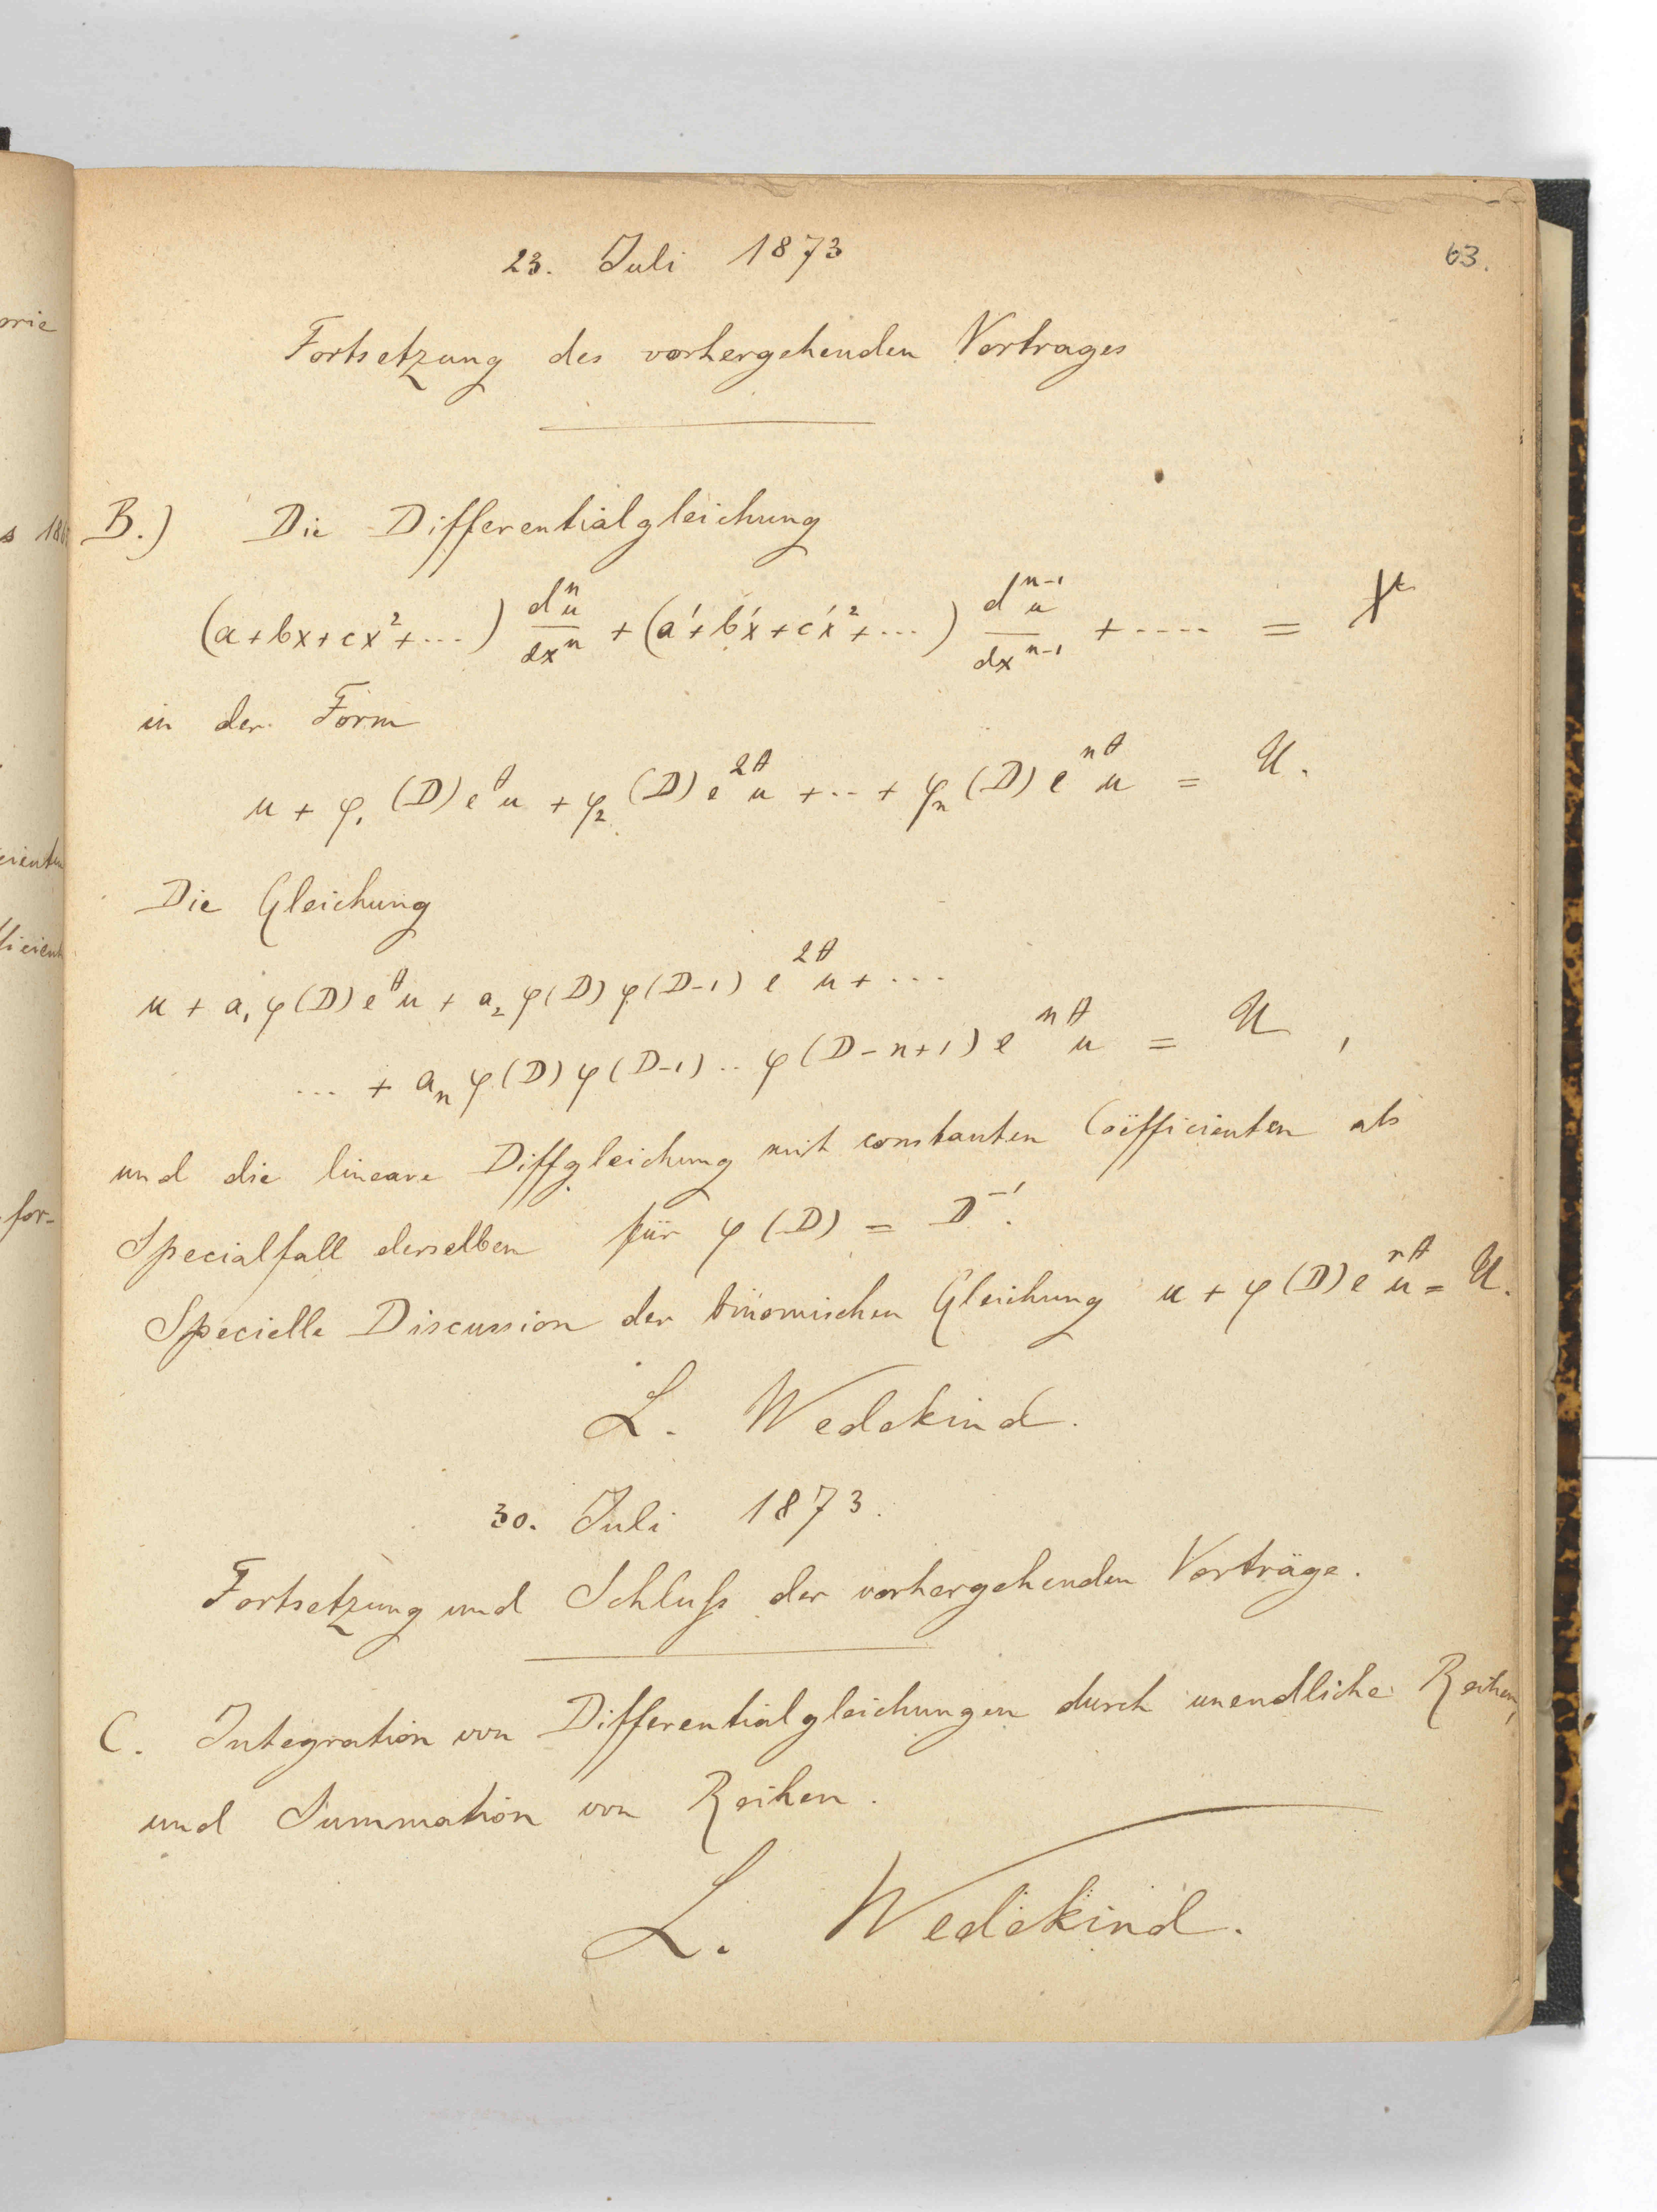 63.
23. Juli 1873
Fortsetzung des vorhergehenden Vortrages
B.) Die Differentialgleichung
(a+bx+cx²+...) dⁿu/dxⁿ + (a'+b'x+c'x²+...) dⁿ⁻¹u/dxⁿ⁻¹ + .... = X
in der Form
u + φ₁(D)e^θ u + φ₂(D)e^{2θ} u + .. + φₙ(D) e^{nθ} u = U.
Die Gleichung
u + a₁φ(D)e^θ u + a₂φ(D)φ(D-1) e^{2θ} u + ...
... + aₙφ(D)φ(D-1)..φ(D-n+1) e^{nθ} u = U,
und die lineare Diffgleichung mit constanten Coëfficienten als
Specialfall derselben für φ(D) = D⁻¹.
Specielle Discussion der binomischen Gleichung u + φ(D)e^{rθ} u = U.
L. Wedekind.
30. Juli 1873.
Fortsetzung und Schluß der vorhergehenden Vorträge.
C. Integration von Differentialgleichungen durch unendliche Reihen,
und Summation von Reihen.
L. Wedekind.